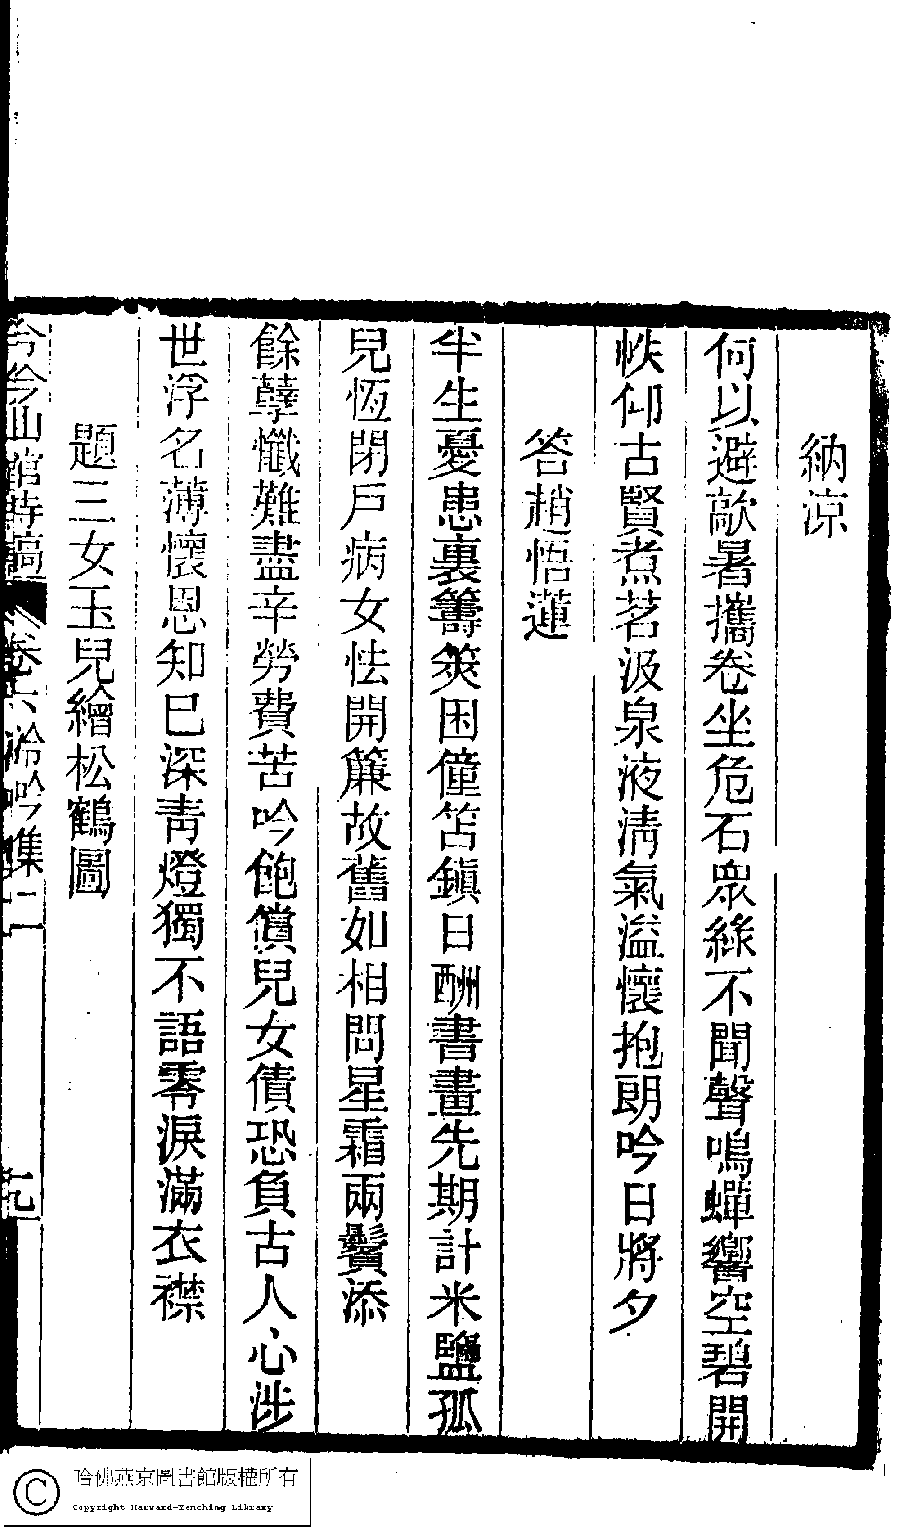 納涼
何以避敵暑攜卷坐危石衆綠不聞聲鳴蟬響空碧開
帙仰古賢煮茗汲泉液淸氣溢懷抱朗吟日將夕
答趙悟蓮
半生憂患裏籌筴困僮笞鎭日酬書畫先期計米鹽孤
兒恆閉戶病女怯開簾故舊如相問星霜兩鬢添
餘孽懺難盡辛勞費苦吟飽償兒女債恐負古人心涉
世浮名薄懷恩知己深靑燈獨不語零淚滿衣襟
題三女玉兒繪松鶴圖
兮山館詩稿 卷六 吟集二 九
哈佛燕京圖書館版權所有
Copyright Harvard-Yenching Library